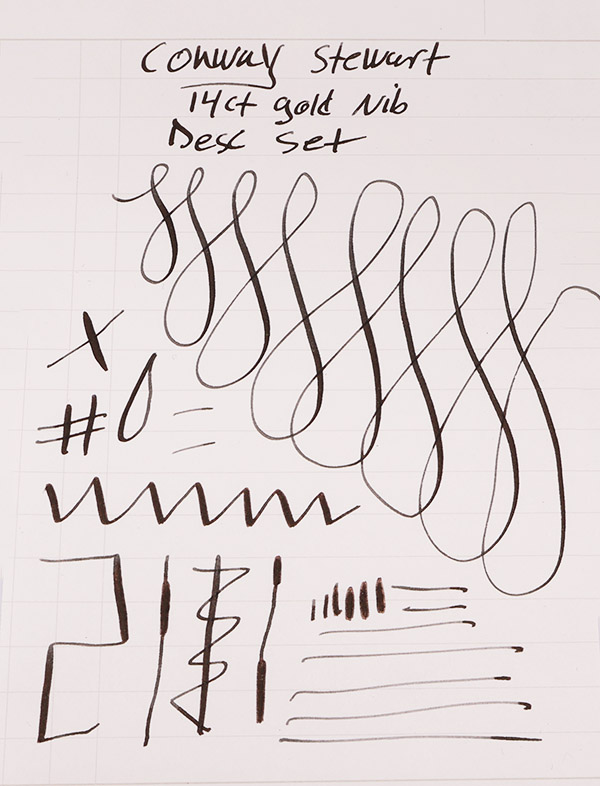 Conway Stewart
14ct gold Nib
Desc Set
#